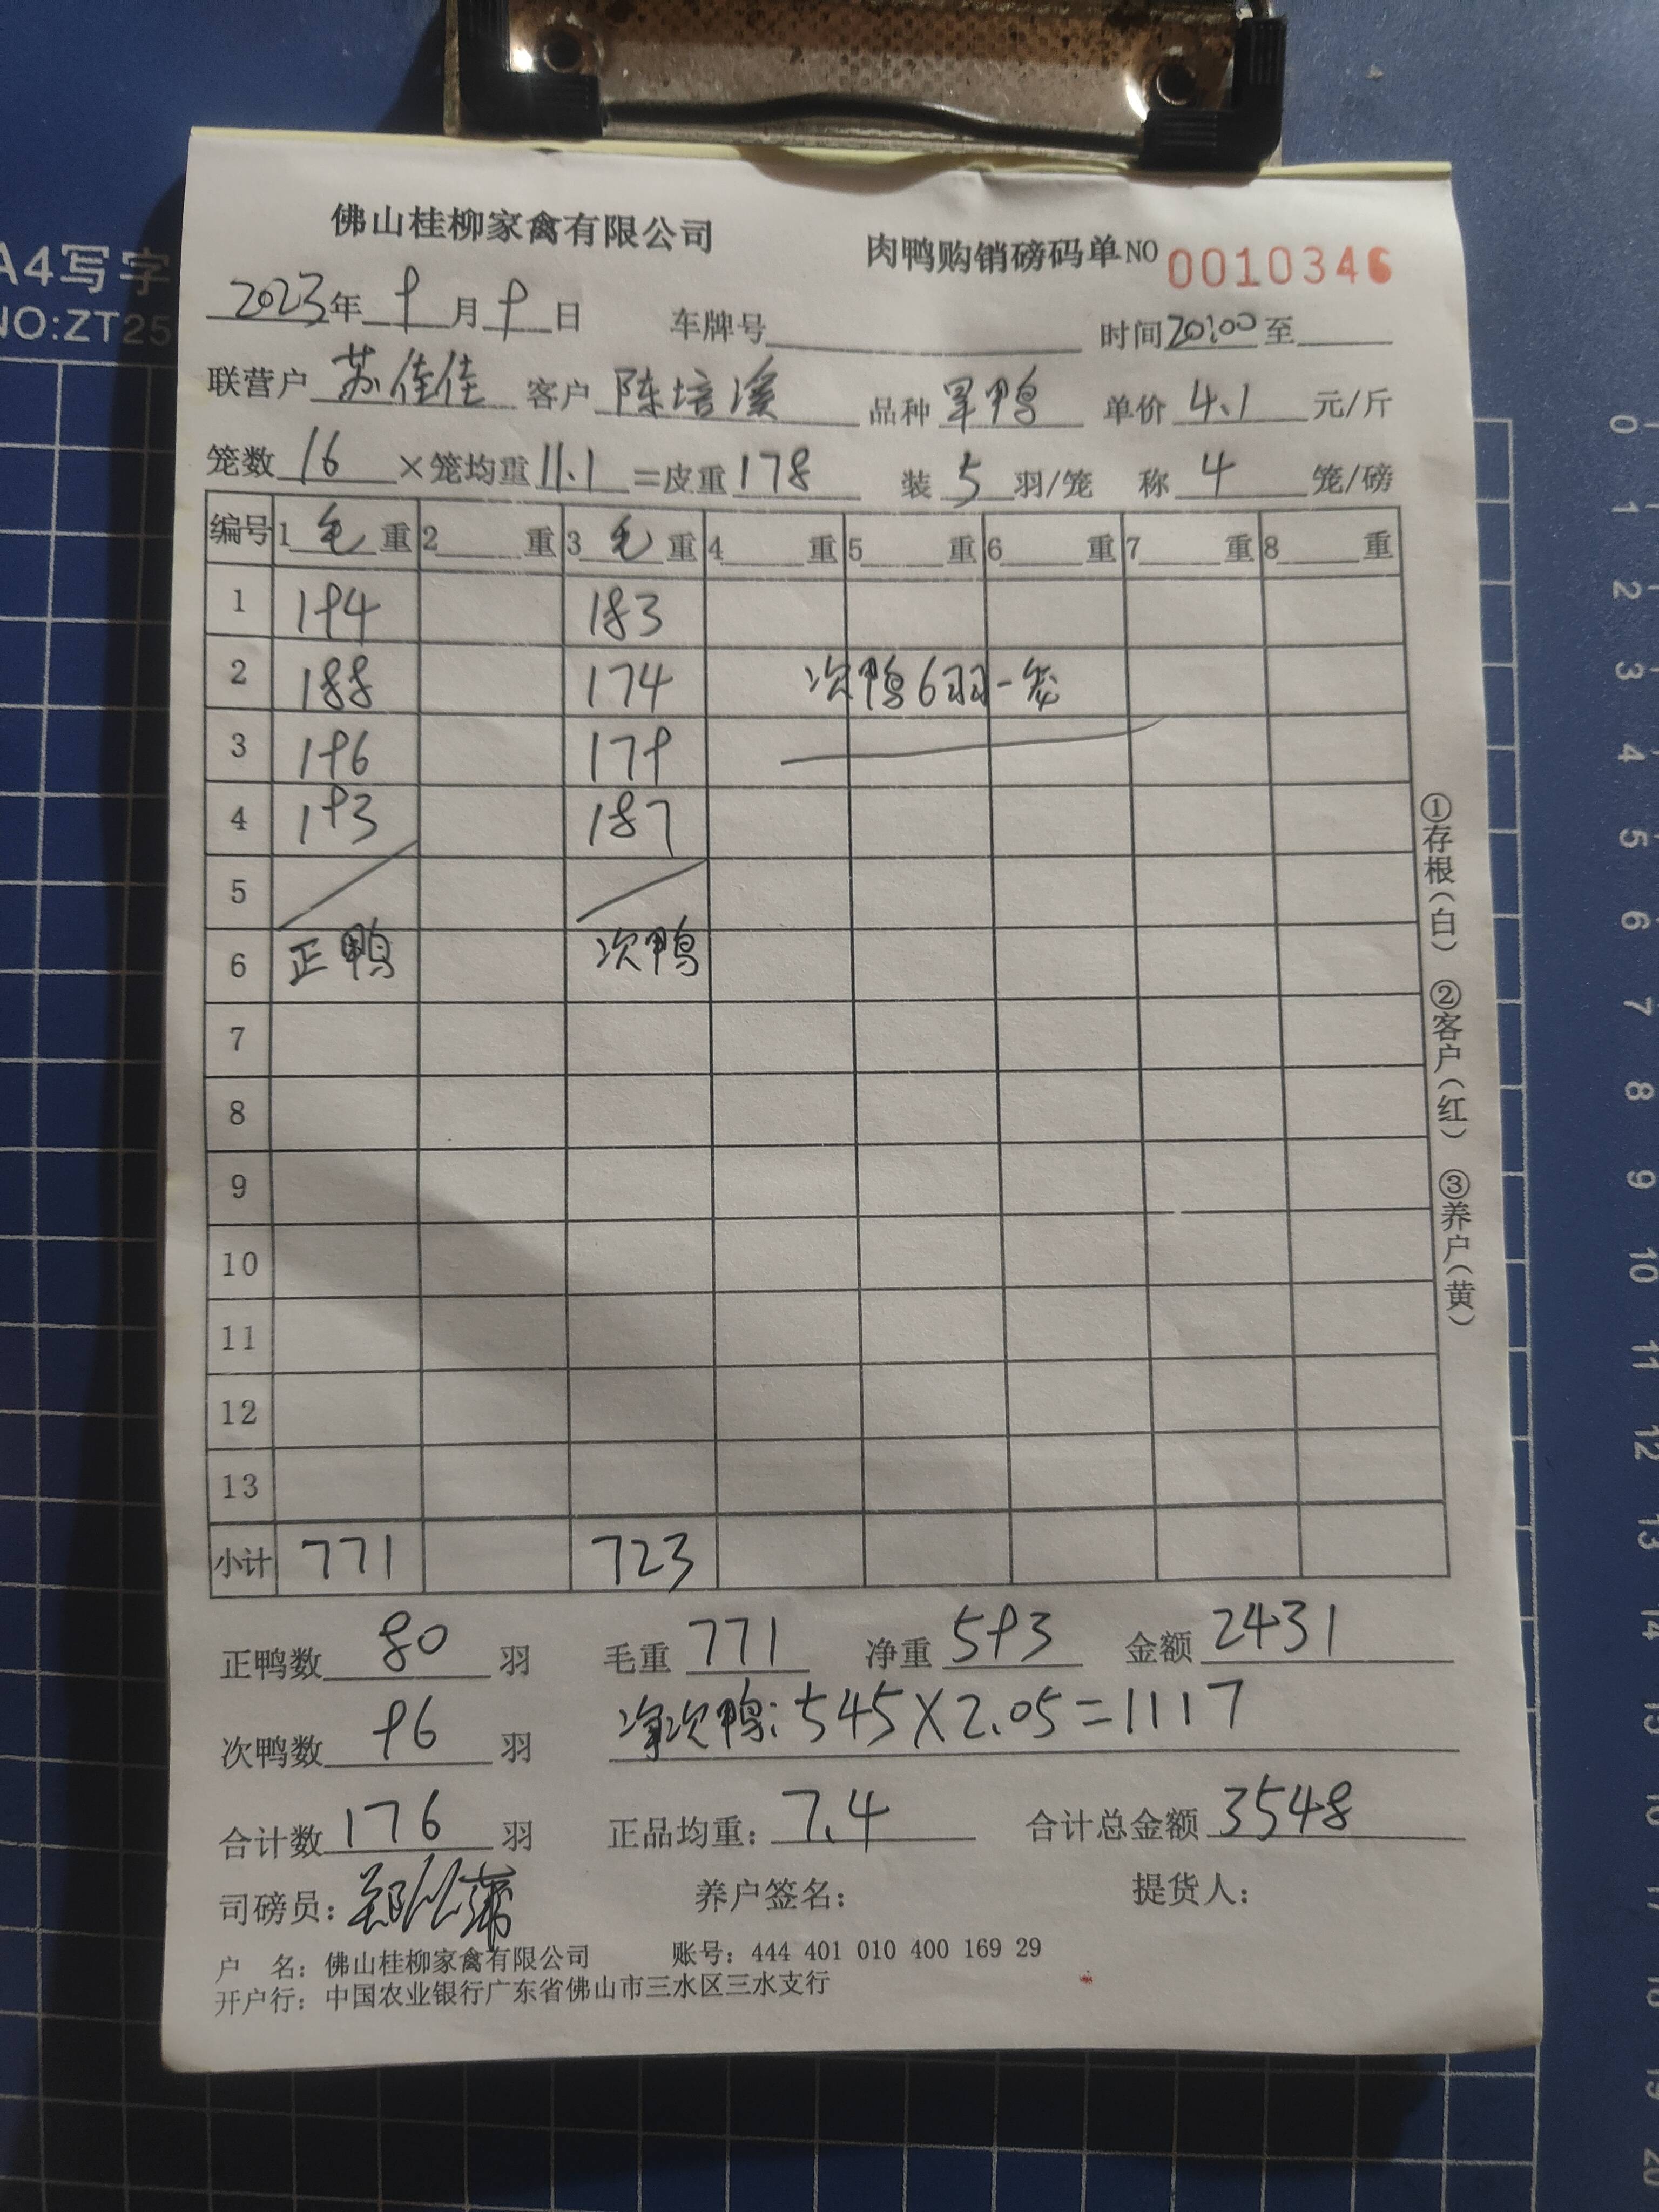 佛山桂柳家禽有限公司 肉鸭购销磅码单NO 0010346
2023年 9 月 9 日 车牌号 时间20:00至
联营户 苏佳佳 客户 陈培溪 品种 旱鸭 单价 4.1 元/斤
笼数 16 ×笼均重 11.1 =皮重 178 装 5 羽/笼 称 4 笼/磅
编号 1 毛 重 2 重 3 毛 重 4 重 5 重 6 重 7 重 8 重
1 194 183
2 188 174 次鸭6羽一笼
3 196 179
4 193 187
5
6 正鸭 次鸭
7
8
9
10
11
12
13
小计 771 723
正鸭数 80 羽 毛重 771 净重 593 金额 2431
次鸭数 96 羽 净次鸭:545×2.05=1117
合计数 176 羽 正品均重: 7.4 合计总金额 3548
司磅员: 养户签名: 提货人:
户 名: 佛山桂柳家禽有限公司 账号: 444 401 010 400 169 29
开户行: 中国农业银行广东省佛山市三水区三水支行
①存根(白) ②客户(红) ③养户(黄)
A4写字
NO:ZT25
0
1
2
3
4
5
6
7
8
9
10
11
12
13
14
15
16
17
18
19
20